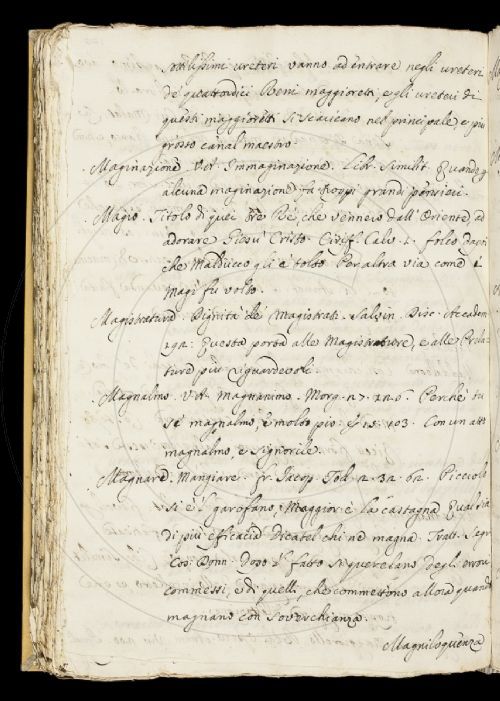 sottilissimi ureteri vanno ad entrare negli ureteri
de' quattordici Reni maggioretti, e gli ureteri di
questi maggioretti si scaricano nel principale, e più
grosso canal maestro.
Maginazione. V. A. Immaginazione. Libr. Similit. Quando
alcuna maginazione fa Roppi grandi pensieri.
Magio. Titolo di quei tre Re, che vennero dall' Oriente ad
adorare Gesù Cristo. Ciriff. Calv. 1. folco
che Malducco gli è tolto Per altra via come i
Magi fu volto.
Magistratura. Dignità de' Magistrati. Salvin. Disc. Accadem.
192. Questa porta alle Magistrature, e alle Prela-
ture più riguardevoli.
Magnalmo. V. A. magnanimo. Morg. 27. 220. Perchè tu
se' magnalmo, e molto pio: E 15. 103. Con un atto
magnalmo, e signorile.
Magnare. Mangiare. Fr. Jacop. Tod. 2. 32. 62. Piccolo
si è 'l garofano, Maggior è la castagna Qual sia
di più efficacia Dicatel chi ne magna. Tratt. Segr.
Cos. Donn. Dopo 'l fatto si querelano degli errori
commessi, e di quelli, che commettono allora quando
magnano con soverchianza.
Magniloquenza